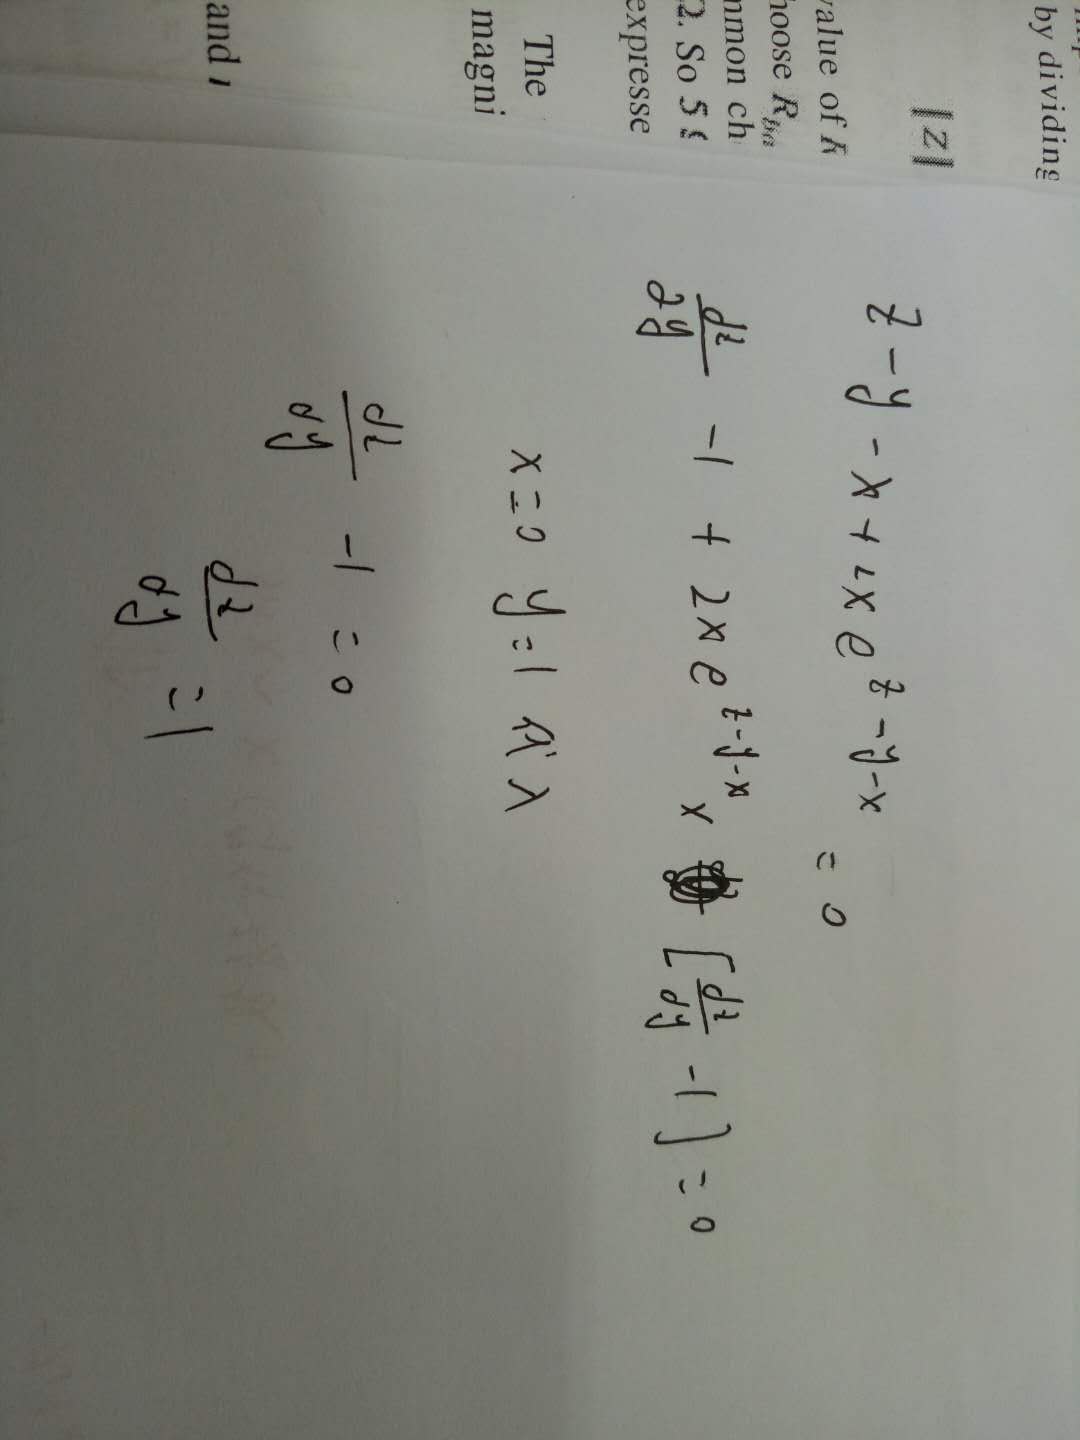 by dividing
|z|
value of
hoose R
mmon ch
2. So 5
expresse
The
magni
and
z - y - x + 2x e^{z-y-x} = 0
dz/dy - 1 + 2x e^{z-y-x} × [dz/dy - 1] = 0
x=0 y=1 代入
dz/dy - 1 = 0
dz/dy = 1